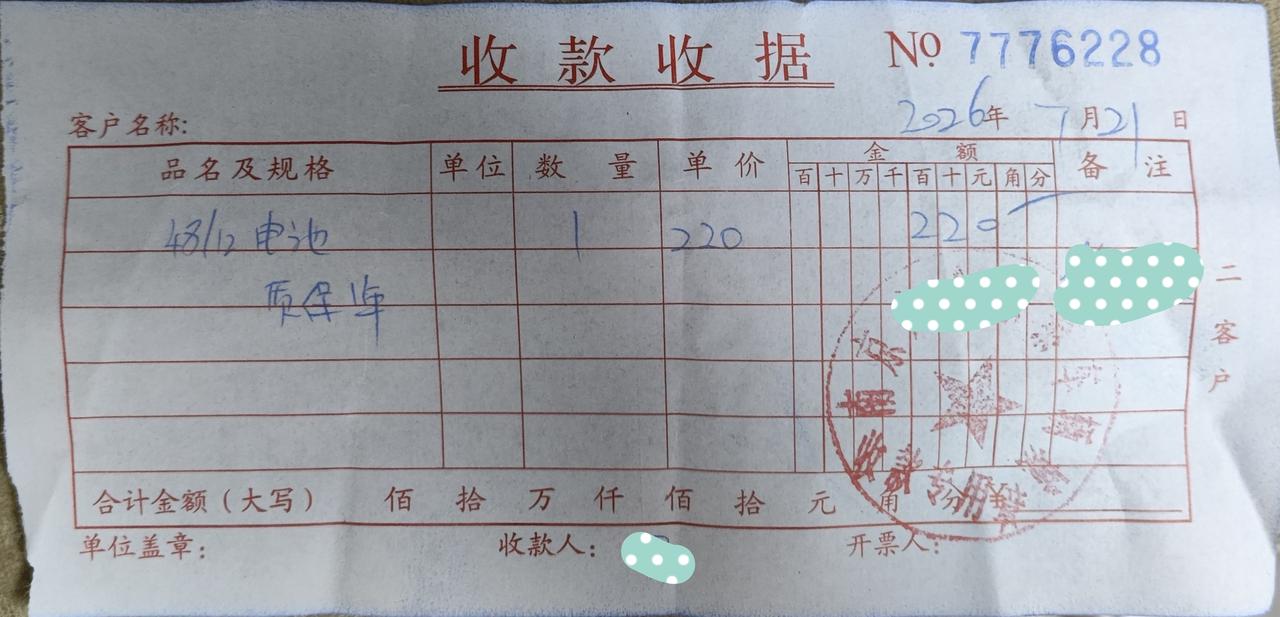 收款收据 No 7776228
客户名称: 2026年 7月21日
品名及规格 单位 数量 单价 金额 备注
百 十 万 千 百 十 元 角 分
48/12 电池 1 220 220
质保 年
二 客户
合计金额(大写) 佰 拾 万 仟 佰 拾 元 角 分
单位盖章: 收款人: 开票人:
南京